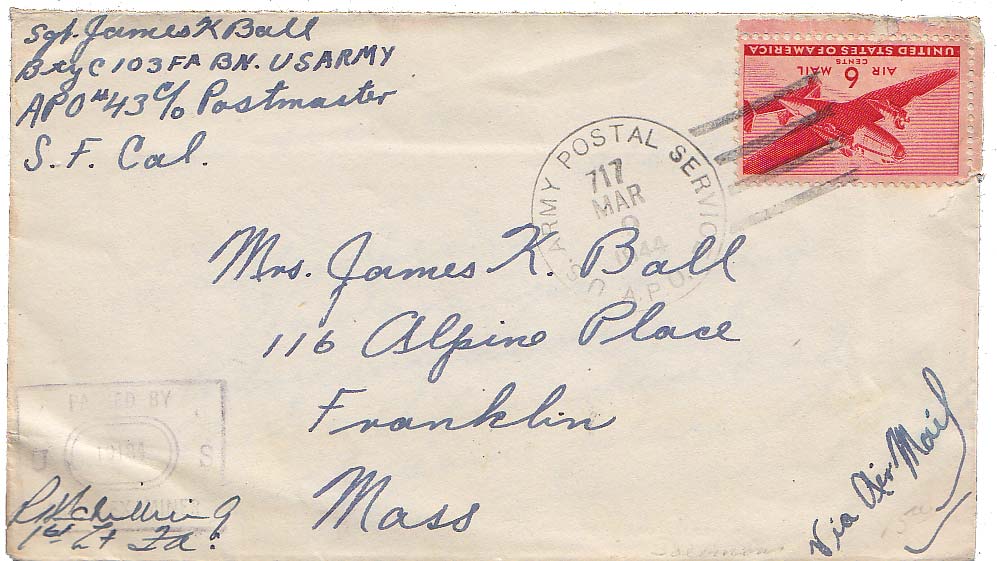 Sgt. James K Ball
Btry C 103 FA BN. US ARMY
APO #43 c/o Postmaster
S. F. Cal.
UNITED STATES OF AMERICA
AIR 6 MAIL
CENTS
U.S. ARMY POSTAL SERVICE
A.P.O.
717
MAR
1944
Mrs. James K. Ball
116 Alpine Place
Franklin
Mass
BY
U S
1st Lt Fa.
Via Air Mail